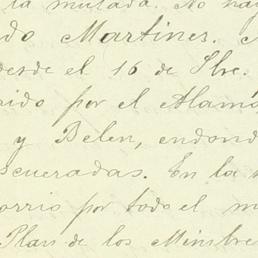 la mulada. No hay
do Martines.
desde el 16 de Sbre.
rido por el Alamo
y Belen, endond
scueradas. En la
orrio por todo el m
Plan de los Mimbre